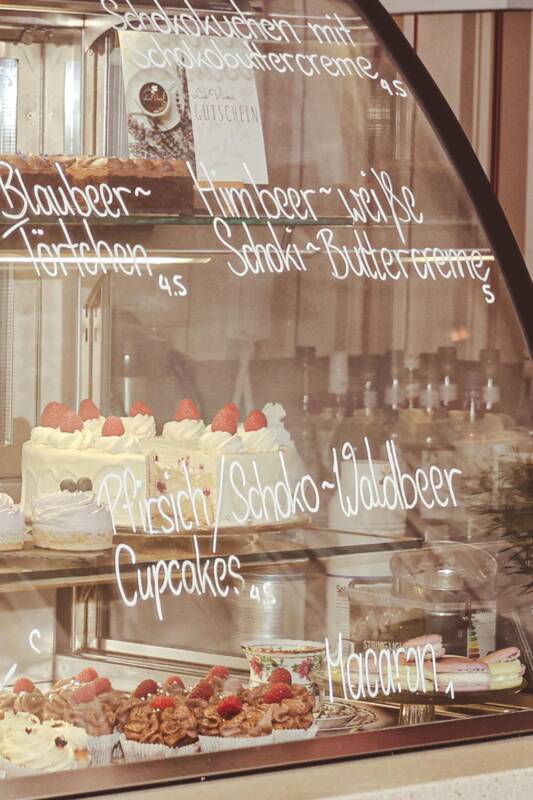 Schokokuchen mit
Schokobuttercreme 4.5
GUTSCHEIN
Blaubeer~
Törtchen 4.5
Himbeer~weiße
Schoki~Buttercreme 5
Pfirsich/Schoko~Waldbeer
Cupcakes 4.5
Macaron 1